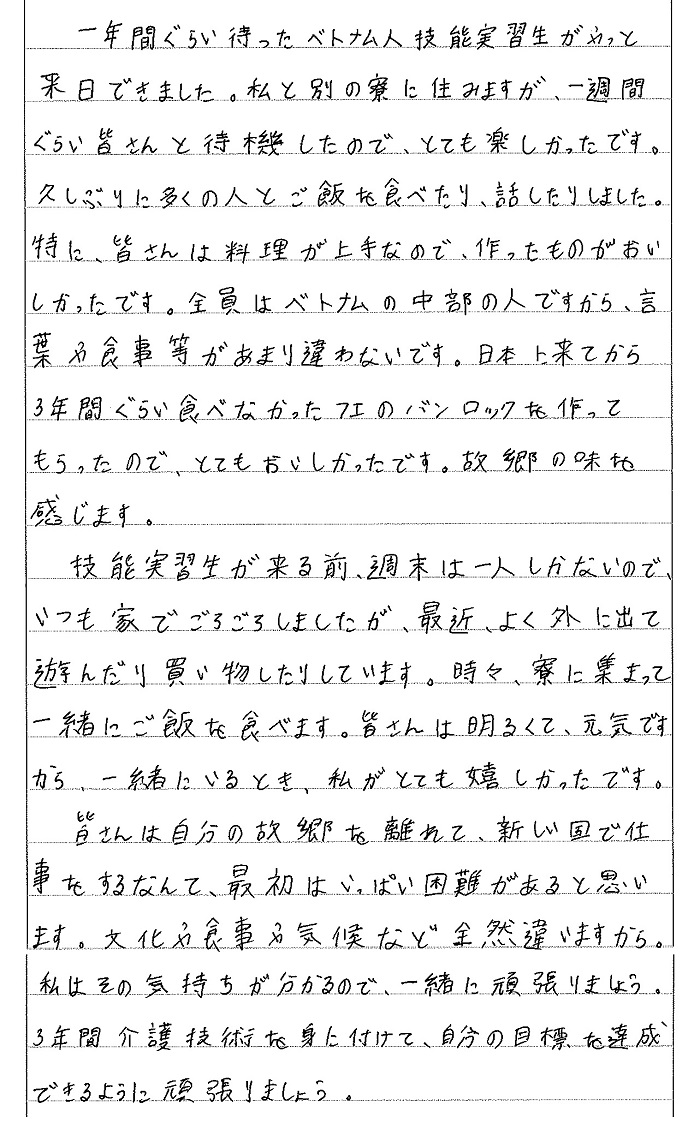 一年間ぐらい待ったベトナム人技能実習生がやっと
来日できました。私と別の寮に住みますが、一週間
ぐらい皆さんと待機したので、とても楽しかったです。
久しぶりに多くの人とご飯を食べたり、話したりしました。
特に、皆さんは料理が上手なので、作ったものがおい
しかったです。全員はベトナムの中部の人ですから、言
葉や食事等があまり違わないです。日本に来てから
3年間ぐらい食べなかったフエのバンロックを作って
もらったので、とてもおいしかったです。故郷の味を
感じます。
技能実習生が来る前、週末は一人しかないので、
いつも家でごろごろしましたが、最近、よく外に出て
遊んだり買い物したりしています。時々、寮に集まって
一緒にご飯を食べます。皆さんは明るくて、元気です
から、一緒にいるとき、私がとても嬉しかったです。
皆さんは自分の故郷を離れて、新しい国で仕
事をするなんて、最初はいっぱい困難があると思い
ます。文化や食事や気候など全然違いますから。
私はその気持ちが分かるので、一緒に頑張りましょう。
3年間介護技術を身に付けて、自分の目標を達成
できるように頑張りましょう。